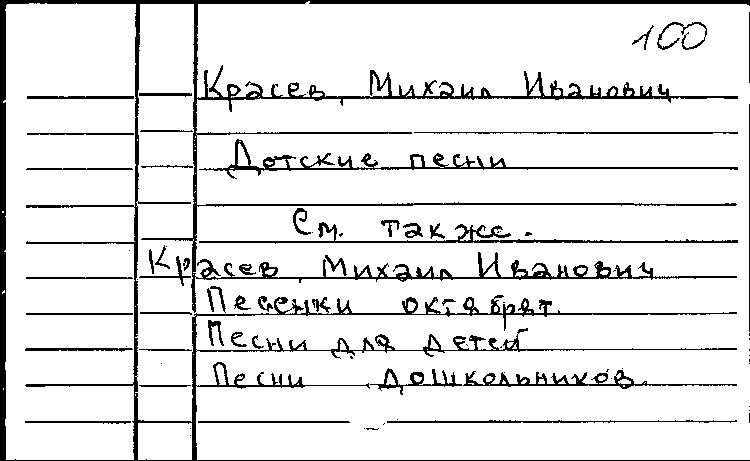 100
Красев, Михаил Иванович
Детские песни
См. также.
Красев, Михаил Иванович
Песенки октябрят.
Песни для детей
Песни дошкольников.